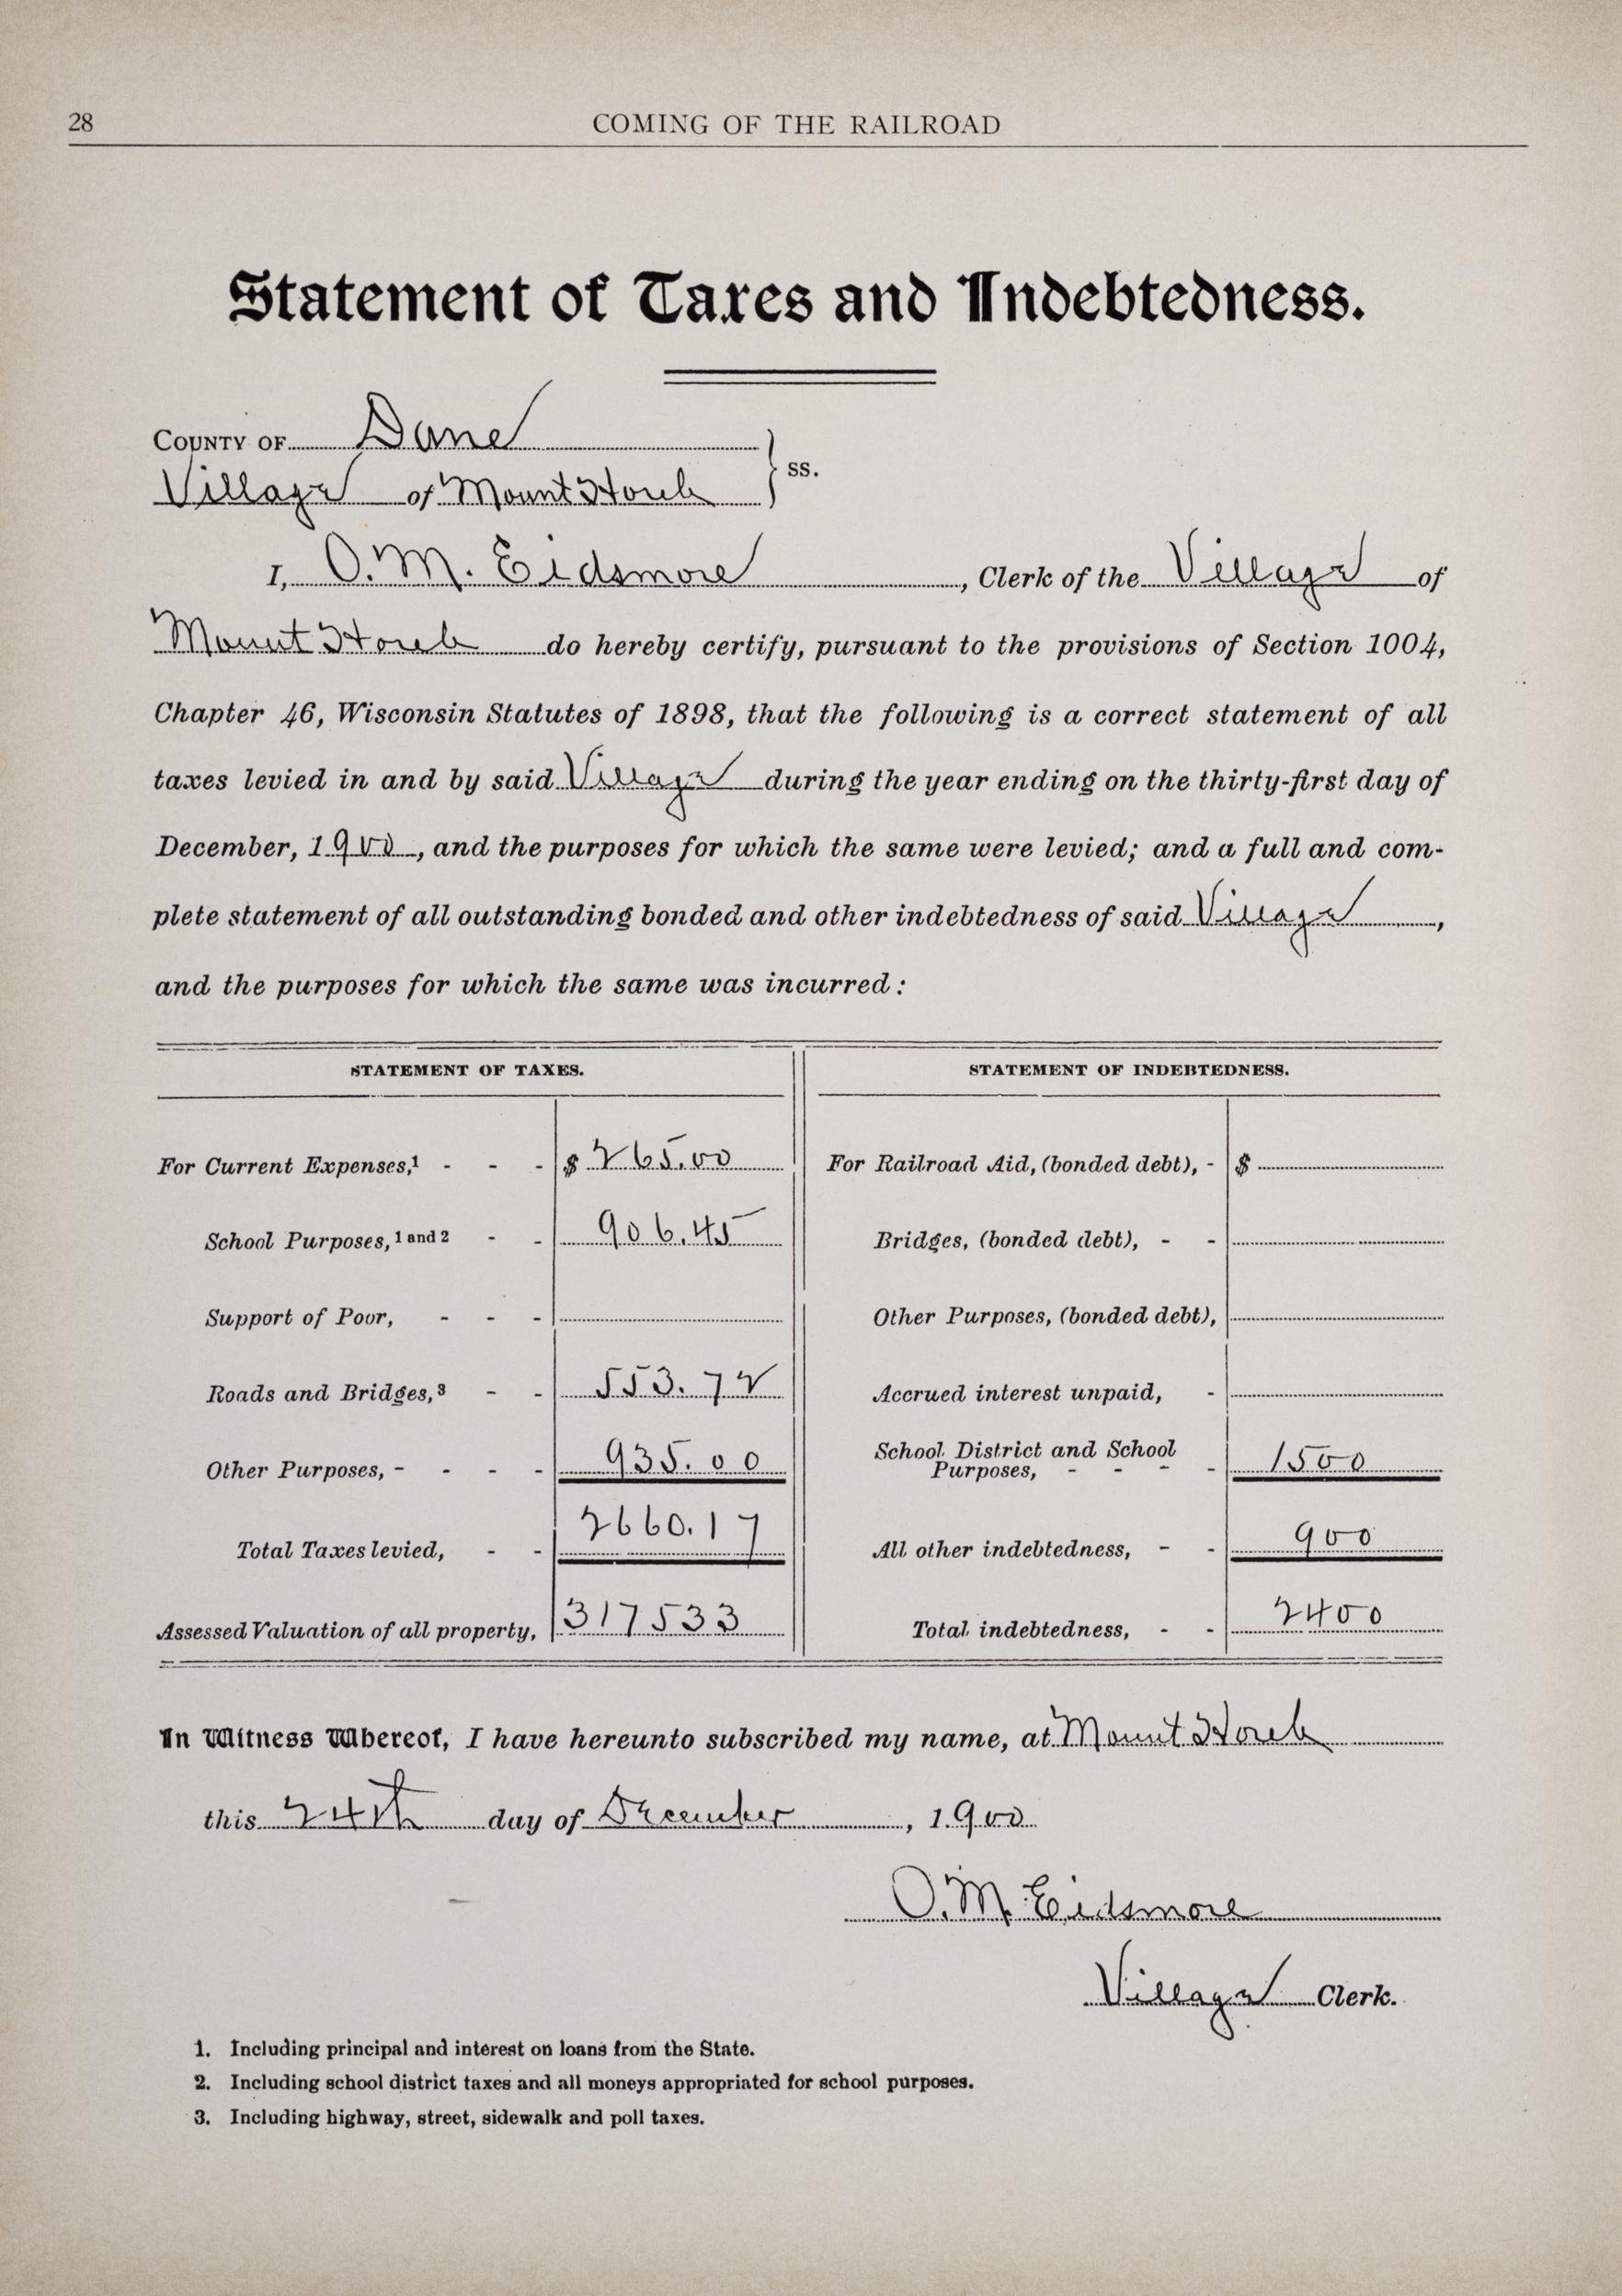 28
COMING OF THE RAILROAD
Statement of Taxes and Indebtedness.
COUNTY OF Dane
Village of Mount Horeb } ss.
I, O. M. Eidsmore, Clerk of the Village of
Mount Horeb do hereby certify, pursuant to the provisions of Section 1004,
Chapter 46, Wisconsin Statutes of 1898, that the following is a correct statement of all
taxes levied in and by said Village during the year ending on the thirty-first day of
December, 1900, and the purposes for which the same were levied; and a full and com-
plete statement of all outstanding bonded and other indebtedness of said Village,
and the purposes for which the same was incurred:
STATEMENT OF TAXES.
For Current Expenses,1 - - - $ 265.00
School Purposes, 1 and 2 - - 906.45
Support of Poor, - - -
Roads and Bridges,3 - - 553.72
Other Purposes, - - - - 935.00
Total Taxes levied, - - 2660.17
Assessed Valuation of all property, 317533
STATEMENT OF INDEBTEDNESS.
For Railroad Aid, (bonded debt), - $
Bridges, (bonded debt), - -
Other Purposes, (bonded debt),
Accrued interest unpaid, -
School District and School
Purposes, - - - - 1500
All other indebtedness, - - 900
Total indebtedness, - - 2400
In Witness Whereof, I have hereunto subscribed my name, at Mount Horeb
this 24th day of December, 1900
O. M. Eidsmore
Village Clerk.
1. Including principal and interest on loans from the State.
2. Including school district taxes and all moneys appropriated for school purposes.
3. Including highway, street, sidewalk and poll taxes.